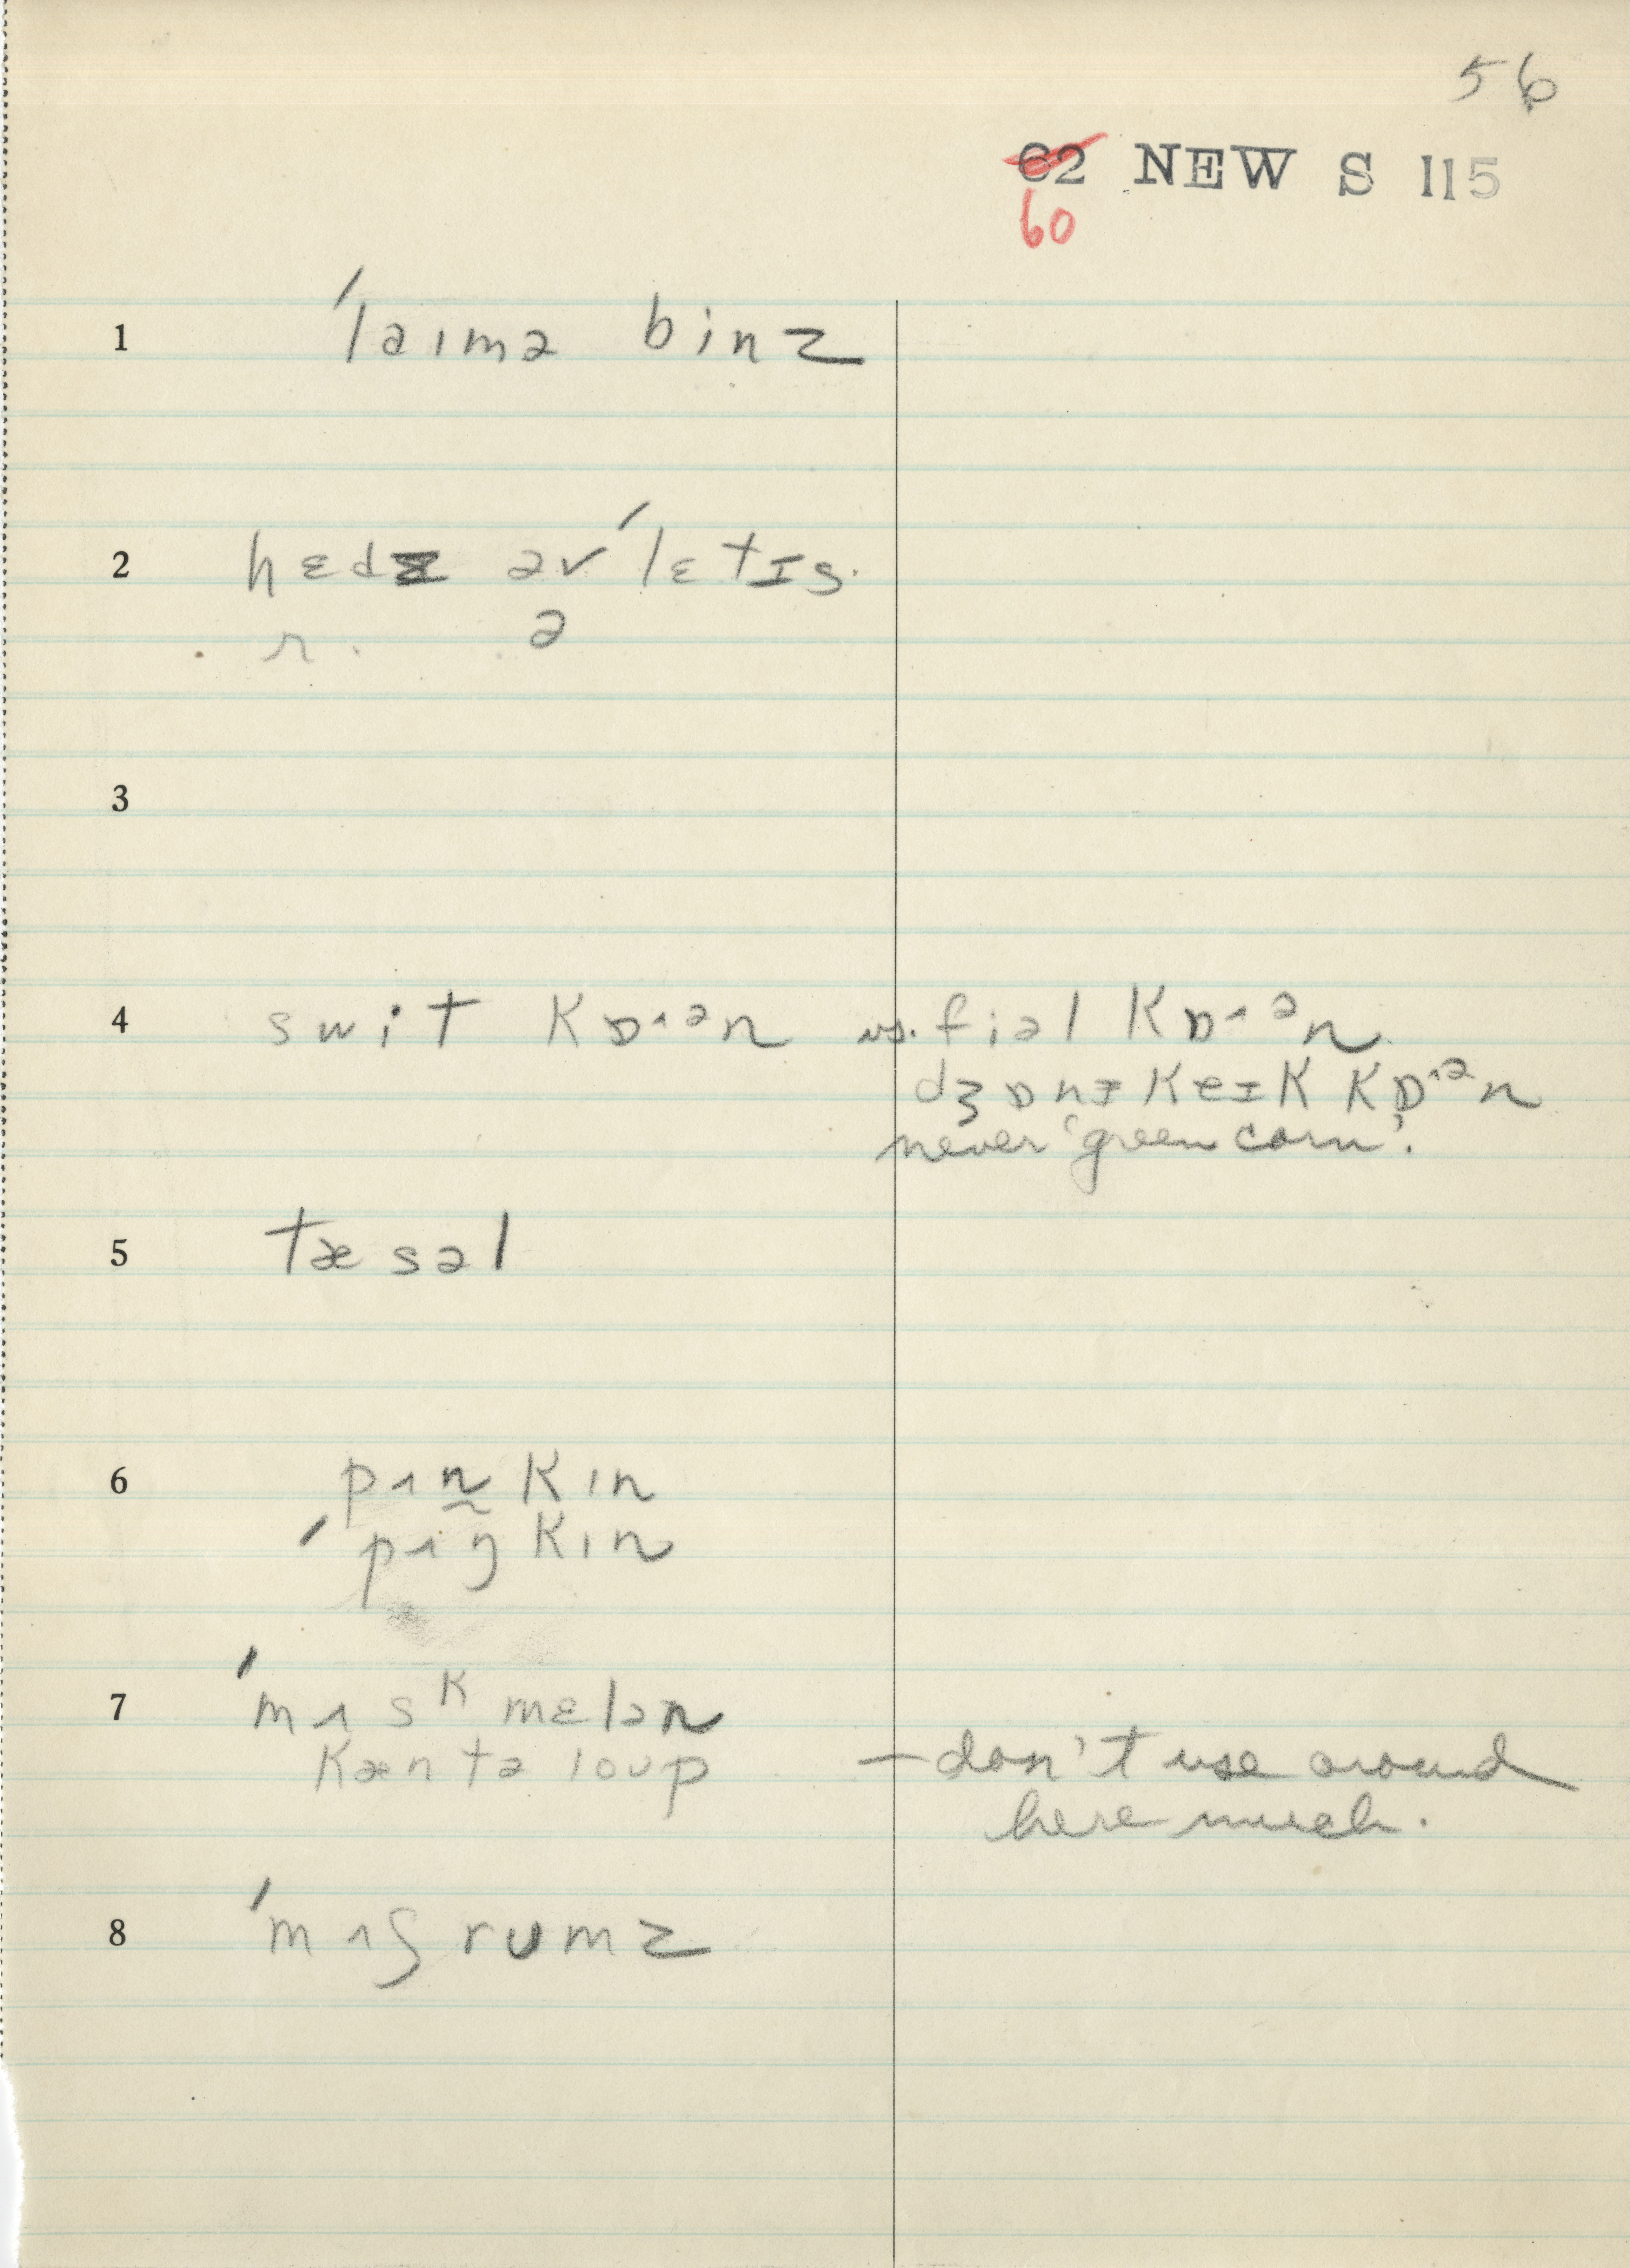 56
62 NEW S 115
60
1 ˈlaɪmə binz
2 hɛdz əv ˈlɛtɪs.
ə
3
4 swit kɒ˄ᵊn vs. fiəl kɒ˄ᵊn.
dʒɒnɪkeɪk kɒ˄ᵊn
never 'green corn'.
5 tæsəl
6 pʌn̰kɪn
ˈpʌŋkɪn
7 ˈmʌsᵏmɛlən
kæntəloup — don't use around
here much.
8 ˈmʌʃrumz